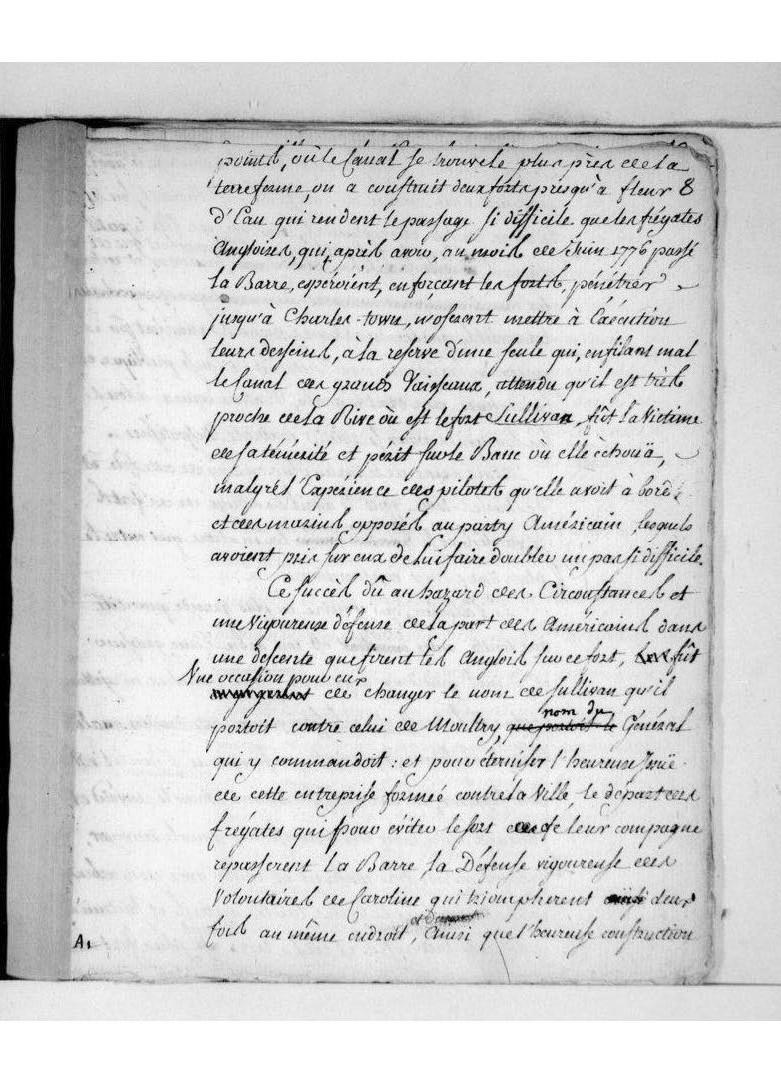 pointes, où le Canal se trouve le plus près de la
terre ferme, on a construit deux forts presqu'à fleur 8
d'Eau qui rendent le passage si difficile que les frégates
Angloises, qui, après avoir, au mois de Juin 1776 passé
la Barre, espéroient, en forçant les forts, pénétrer
jusqu'à Charles-town, n'oserent mettre à Exécution
leurs desseins, à la reserve d'une seule qui, enfilant mal
le Canal des grands Vaisseaux, attendu qu'il est très
proche de la Rive où est le fort Sullivan, fût la Victime
de sa témérité et périt sur le Banc où elle échoüa,
malgré l'Expérience des pilotes qu'elle avoit à bord
et des marins opposés au party Américain, lesquels
avoient pris sur eux de lui faire doubler un pas si difficile.
Ce succès dû au hazard des Circonstances et
une Vigoureuse défense de la part des Américains dans
une descente que firent les Anglois sur ce fort, fût
Vne occasion pour eux
de changer le nom de Sullivan qu'il
nom du
portoit contre celui de Moultry, que portoit le Général
qui y commandoit : et pour éterniser l'heureuse Issuë
de cette entreprise formeé contre la Ville, le départ des
frégates qui pour éviter le sort de leur compagne
repasserent la Barre, la Défense vigoureuse des
Volontaires de Caroline qui triompherent deux
fois au même endroit, Ainsi que l'heureuse construction
A.